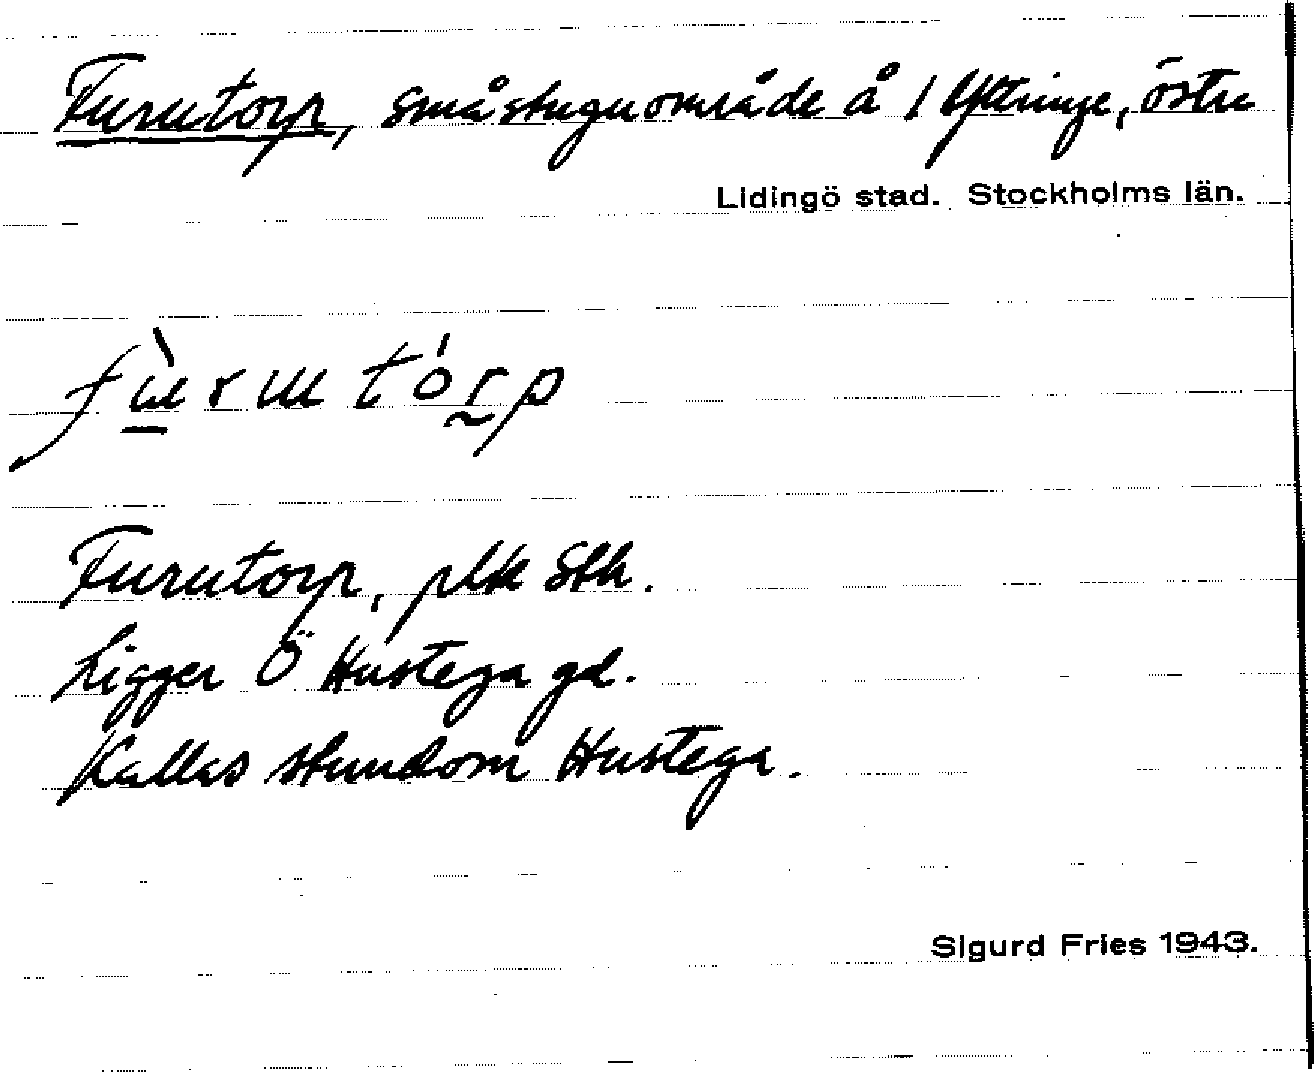 Furutorp, småstuguområde å 1 Yttringe, östra
Lidingö stad. Stockholms län.
Furutorp, plk Sth.
Ligger Ö Hustega gd.
Kallas stundom Hustega.
Sigurd Fries 1943.